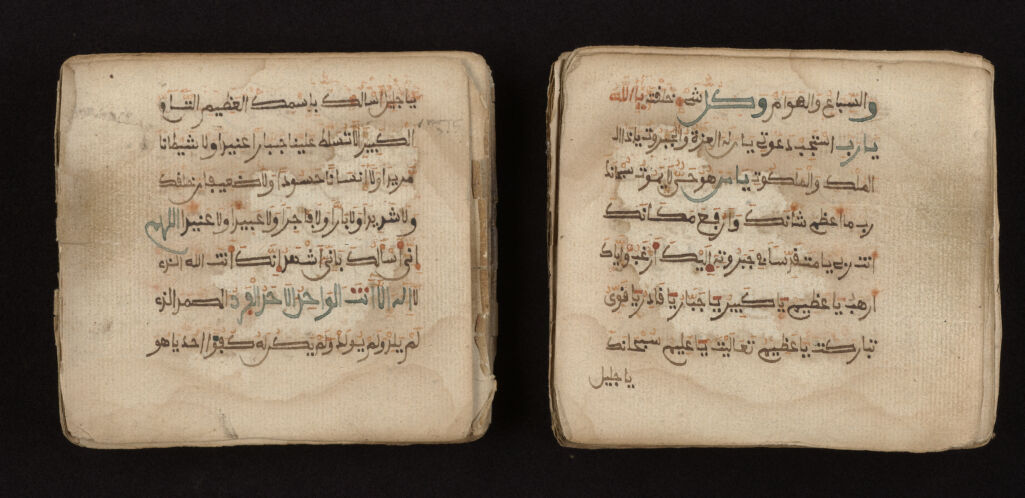 والسباع والهوام وكل شيء خلقته يا الله
يا رب استجب دعوتي يا من له العزة والجبروت يا ذا
الملك والملكوت يا من هو حي لا يموت سبحانك
رب ما اعظم شانك وارفع مكانك
انت ربي يا متقدسا في جبروته اليك ارغب واياك
ارهب يا عظيم يا كبير يا جبار يا قادر يا قوي
تباركت يا عظيم تعاليت يا عليم سبحانك
يا جليل
يا جليل اسالك باسمك العظيم التام
الكبير لا تسلط علينا جبارا عنيدا ولا شيطانا
مريدا ولا انسانا حسودا ولا ضعيفا من خلقك
ولا شريرا ولا بارا ولا فاجرا ولا عبيدا ولا عنيدا اللهم
اني اسالك باني اشهد انك انت الله الذي
لا اله الا انت الواحد الاحد الفرد الصمد الذي
لم يلد ولم يولد ولم يكن له كفوا احد يا هو